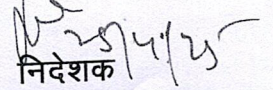 25/4/25
निदेशक